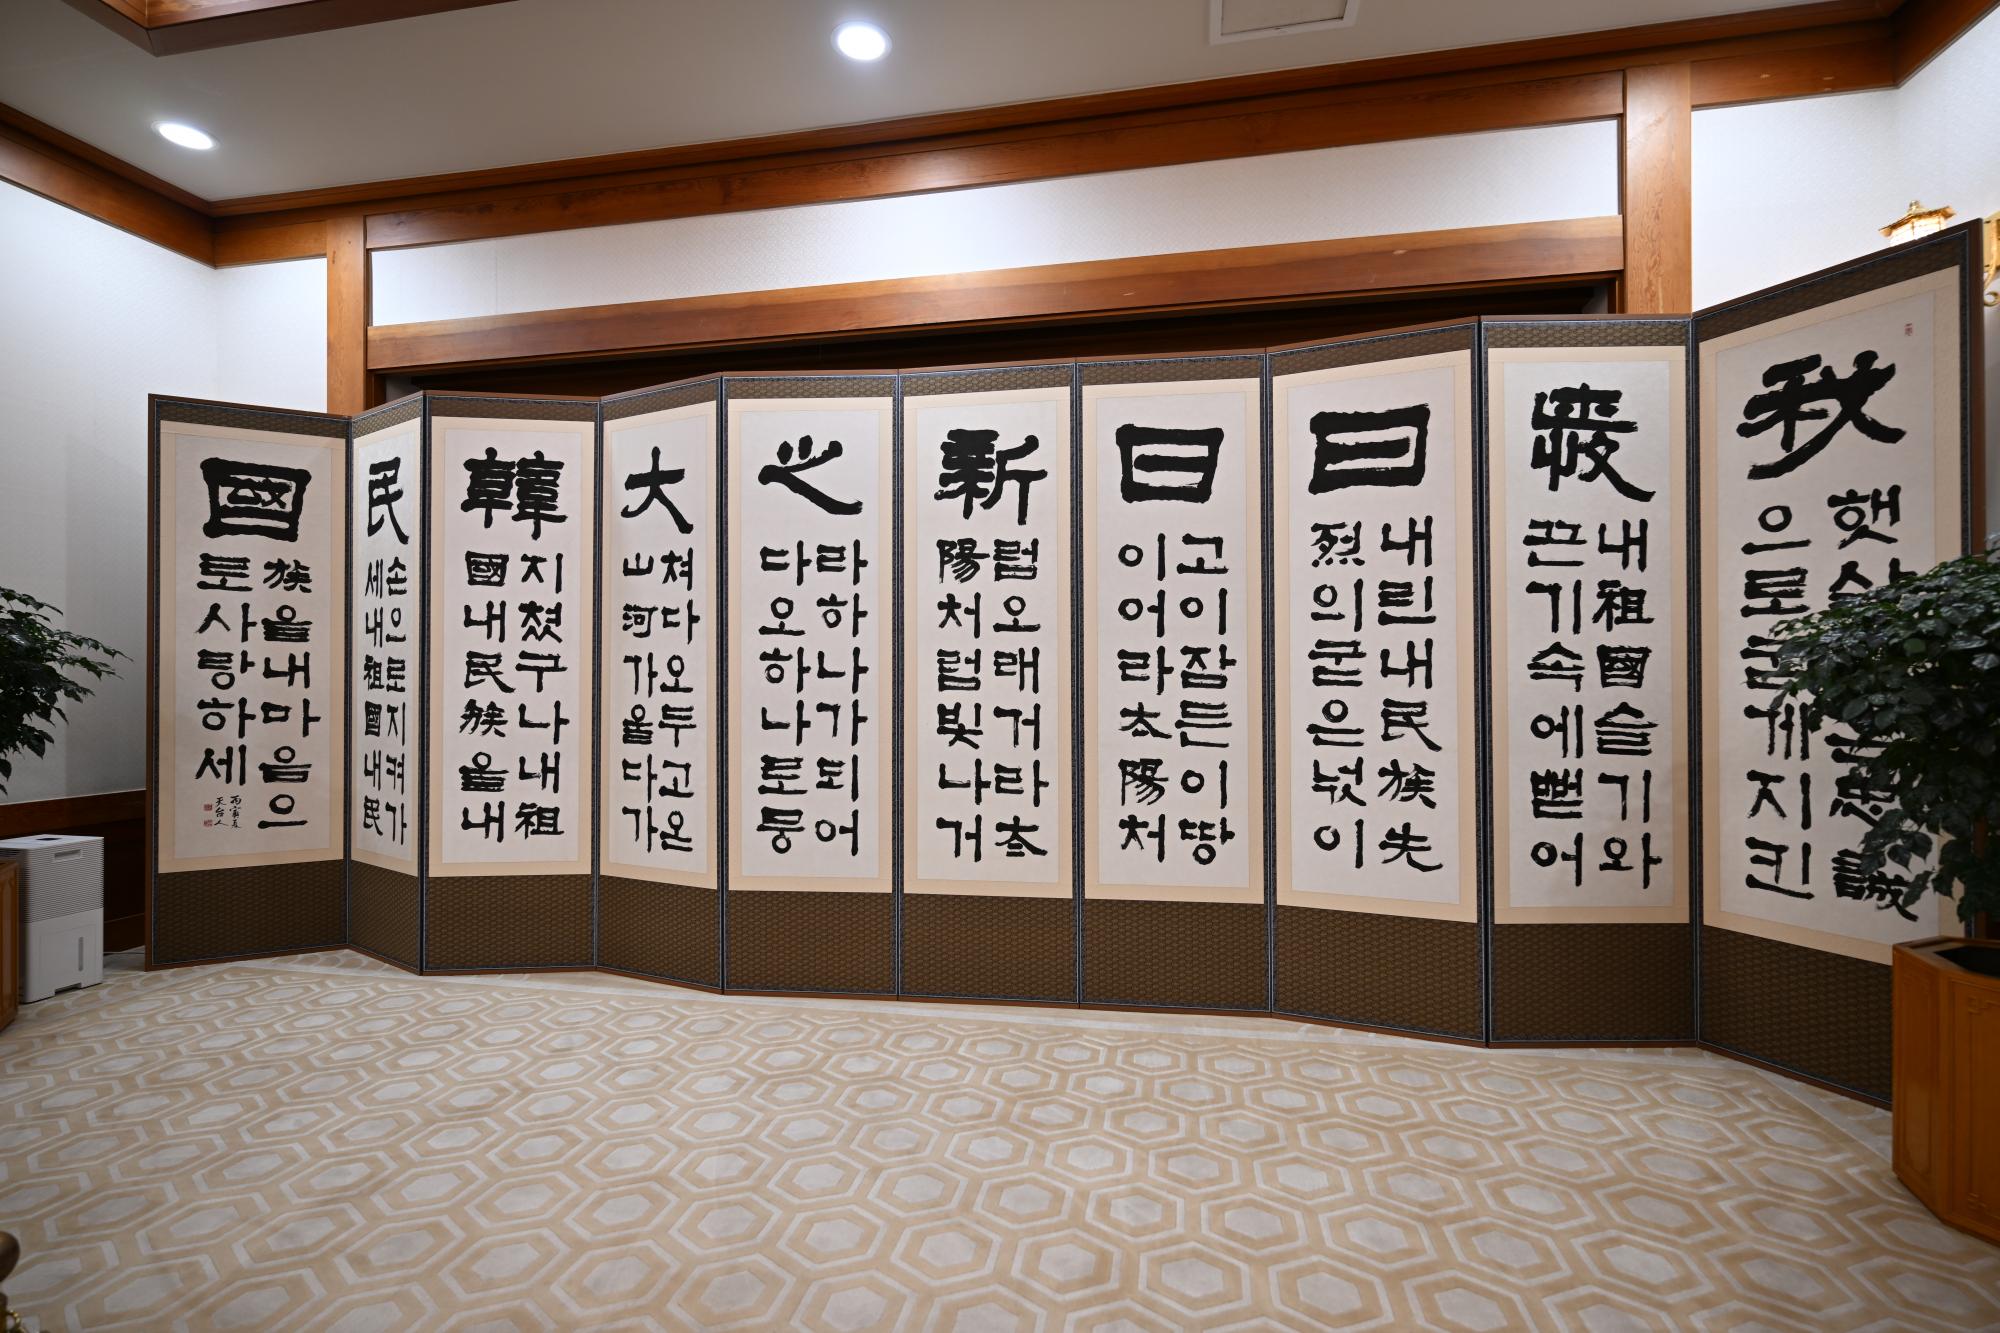 我
햇 忠誠
으로굳게지킨
愛
내祖國슬기와
끈기속에뻗어
日
내린내民族先
烈의굳은넋이
日
고이잠든이땅
이어라太陽처
新
럼오래거라太
陽처럼빛나거
之
라하나가되어
다오하나로뭉
大
쳐다오두고온
山河가울다가
韓
지쳤구나내祖
國내民族을내
民
손으로지켜가
세내祖國내民
國
族을내마음으
로사랑하세
丙寅夏
天台人